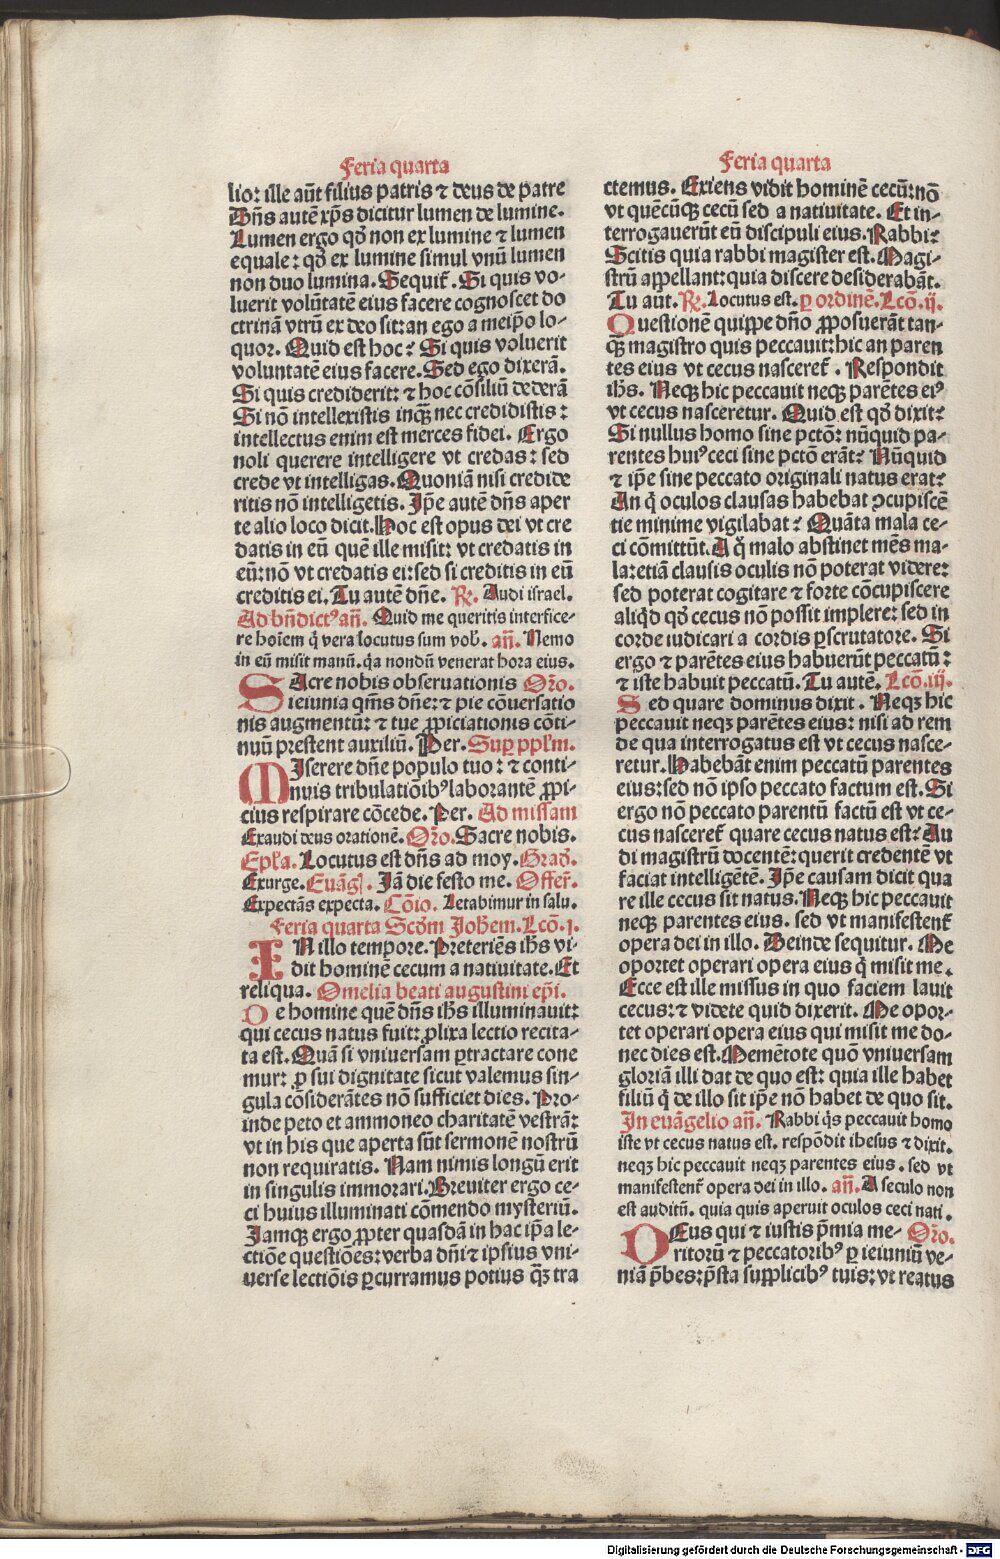 Feria quarta
lior ille aūt filius patris ⁊ deus de patre
Dn̄s autē xp̄s dicitur lumen de lumine.
Lumen ergo qd̄ non ex lumine ⁊ lumen
equale: qd̄ ex lumine simul vnū lumen
non duo lumina. Sequit̄. Si quis vo-
luerit volūtatē eius facere cognoscet do
ctrinā vtrū ex deo sit: an ego a meip̄o lo-
quor. Quid est hoc? Si quis voluerit
voluntatē eius facere. Sed ego dixerā.
Si quis crediderit: ⁊ hoc cōsiliū dederā
Si nō intellexistis inq̄ nec credidistis:
intellectus enim est merces fidei. Ergo
noli querere intelligere vt credas: sed
crede vt intelligas. Quoniā nisi credide
ritis nō intelligetis. Ip̄e autē dn̄s aper
te alio loco dicit. Hoc est opus dei vt cre
datis in eū quē ille misit: vt credatis in
eū: nō vt credatis ei: sed si creditis in eū
creditis ei. Tu autē dn̄e. ℟. Audi israel.
Ad bn̄dictꝰ an̄. Quid me queritis interfice-
re hoīem q̄ vera locutus sum vob̄. an̄. Nemo
in eū misit manū. q̄a nondū venerat hora eius.
SAcre nobis observationis Oro.
ieiunia qm̄s dn̄e: ⁊ pie cōuersatio
nis augmentū: ⁊ tue ꝓpiciationis cōti-
nuū prestent auxiliū. Per. Suꝑ ppl̄m.
MIserere dn̄e populo tuo: ⁊ conti-
nuis tribulatiōibꝰ laborantē ꝓpi-
cius respirare cōcede. Per. Ad missam
Exaudi deus orationē. Oro. Sacre nobis.
Epl̄a. Locutus est dn̄s ad moy. Grad̄.
Exurge. Euāgl̄. Iā die festo me. Offer̄.
Expectās expecta. Cōio. Letabimur in salu.
Feria quarta Scd̄m Joh̄em. Lcō. j.
IN illo tempore. Preteriēs ih̄s vi-
dit hominē cecum a natiuitate. Et
reliqua. Omelia beati augustini ep̄i.
De homine quē dn̄s ih̄s illuminauit:
qui cecus natus fuit: ꝓlixa lectio recita-
ta est. Quā si vniuersam ꝑtractare cone
mur: ꝓ sui dignitate sicut valemus sin-
gula cōsiderātes nō sufficiet dies. Pro-
inde peto et ammoneo charitatē vestrā:
vt in his que aperta sūt sermonē nostrū
non requiratis. Nam nimis longū erit
in singulis immorari. Breuiter ergo ce-
ci huius illuminati cōmendo mysteriū.
Iamqꝫ ergo ꝓpter quasdā in hac ip̄a le-
ctiōe questiōes: verba dn̄i ⁊ ipsius vni-
uerse lectiōis ꝑcurramus potius q̄ꝫ tra
Feria quarta
ctemus. Exiens vidit hominē cecū: nō
vt quēcūqꝫ cecū sed a natiuitate. Et in-
terrogauerūt eū discipuli eius. Rabbi?
Scitis quia rabbi magister est. Magi-
strū appellant: quia discere desiderabāt.
Tu aūt. ℟. Locutus est. ꝑ ordinē. Lcō. ij.
Questionē quippe dn̄o ꝓposuerāt tan-
q̄ꝫ magistro quis peccauit: hic an paren
tes eius vt cecus nasceret̄. Respondit
ih̄s. Neqꝫ hic peccauit neqꝫ parētes eiꝰ
vt cecus nasceretur. Quid est qd̄ dixit?
Si nullus homo sine pctō: nūquid pa-
rentes huiꝰ ceci sine pctō erāt? Nūquid
⁊ ip̄e sine peccato originali natus erat?
An q̄ oculos clausas habebat ꝯcupiscē
tie minime vigilabat? Quāta mala ce-
ci cōmittūt. A q̊ malo abstinet mēs ma-
la: etiā clausis oculis nō poterat videre:
sed poterat cogitare ⁊ forte cōcupiscere
aliq̄d qd̄ cecus nō possit implere: sed in
corde iudicari a cordis ꝑscrutatore. Si
ergo ⁊ parētes eius habuerūt peccatū:
⁊ iste habuit peccatū. Tu autē. Lcō. iij.
Sed quare dominus dixit. Neqꝫ hic
peccauit neqꝫ parētes eius: nisi ad rem
de qua interrogatus est vt cecus nasce-
retur. Habebāt enim peccatū parentes
eius: sed nō ipso peccato factum est. Si
ergo nō peccato parentū factū est vt ce-
cus nasceret̄ quare cecus natus est? Au
di magistrū docentē: querit credentē vt
faciat intelligētē. Ip̄e causam dicit qua
re ille cecus sit natus. Neqꝫ hic peccauit
neqꝫ parentes eius. sed vt manifestent̄
opera dei in illo. Deinde sequitur. Me
oportet operari opera eius q̄ misit me.
Ecce est ille missus in quo faciem lauit
cecus: ⁊ videte quid dixerit. Me opor-
tet operari opera eius qui misit me do-
nec dies est. Memētote quō vniuersam
gloriā illi dat de quo est: quia ille habet
filiū q̄ de illo sit ip̄e nō habet de quo sit.
In euāgelio an̄. Rabbi q̄s peccauit homo
iste vt cecus natus est. respōdit ihesus ⁊ dixit.
neqꝫ hic peccauit neqꝫ parentes eius. sed vt
manifestent̄ opera dei in illo. an̄. A seculo non
est auditū. quia quis aperuit oculos ceci nati.
DEus qui ⁊ iustis p̄mia me- Oro.
ritorū ⁊ peccatoribꝰ ꝑ ieiuniū ve-
niā p̄bes: p̄sta supplicibꝰ tuis: vt reatus
Digitalisierung gefördert durch die Deutsche Forschungsgemeinschaft - DFG